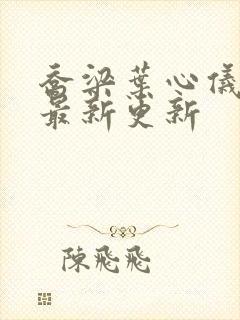 喬梁葉心儀
最新更新
陳飛飛